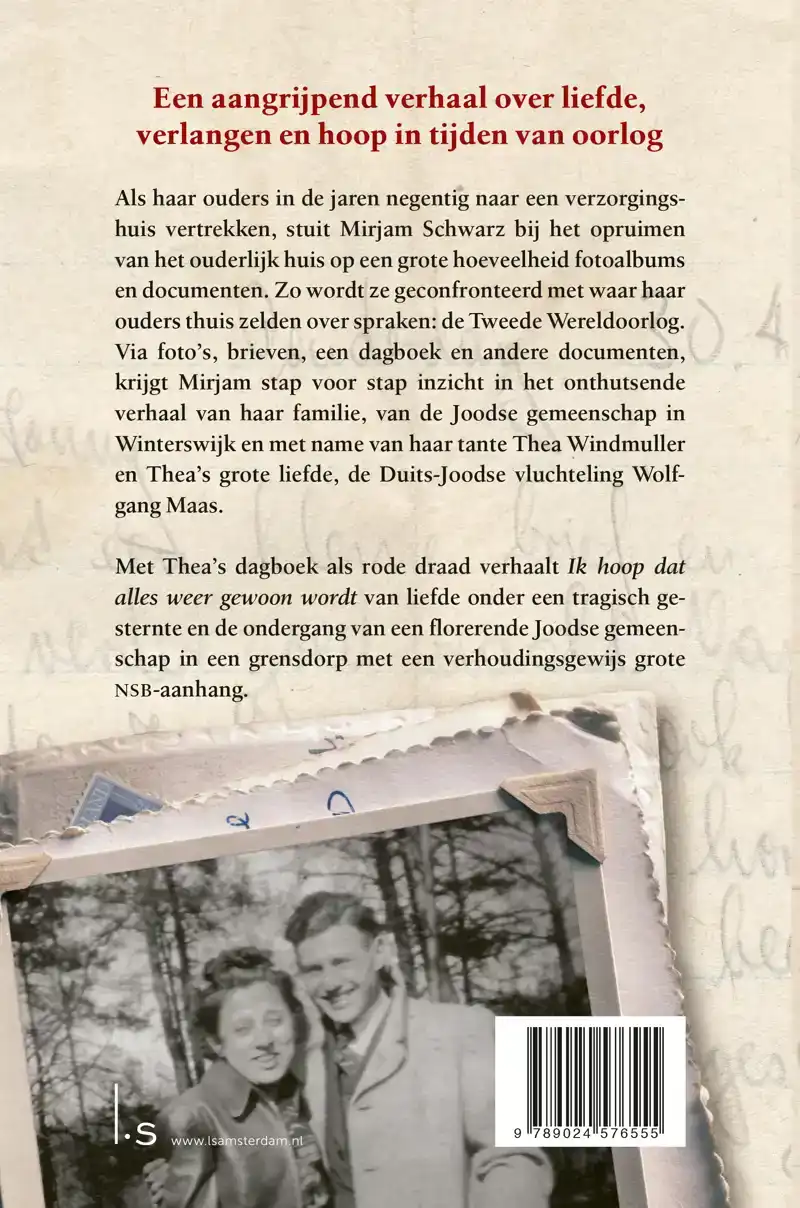 Een aangrijpend verhaal over liefde,
verlangen en hoop in tijden van oorlog
Als haar ouders in de jaren negentig naar een verzorgings-
huis vertrekken, stuit Mirjam Schwarz bij het opruimen
van het ouderlijk huis op een grote hoeveelheid fotoalbums
en documenten. Zo wordt ze geconfronteerd met waar haar
ouders thuis zelden over spraken: de Tweede Wereldoorlog.
Via foto's, brieven, een dagboek en andere documenten,
krijgt Mirjam stap voor stap inzicht in het onthutsende
verhaal van haar familie, van de Joodse gemeenschap in
Winterswijk en met name van haar tante Thea Windmuller
en Thea's grote liefde, de Duits-Joodse vluchteling Wolf-
gang Maas.
Met Thea's dagboek als rode draad verhaalt Ik hoop dat
alles weer gewoon wordt van liefde onder een tragisch ge-
sternte en de ondergang van een florerende Joodse gemeen-
schap in een grensdorp met een verhoudingsgewijs grote
NSB-aanhang.
l.s www.lsamsterdam.nl
9 789024 576555